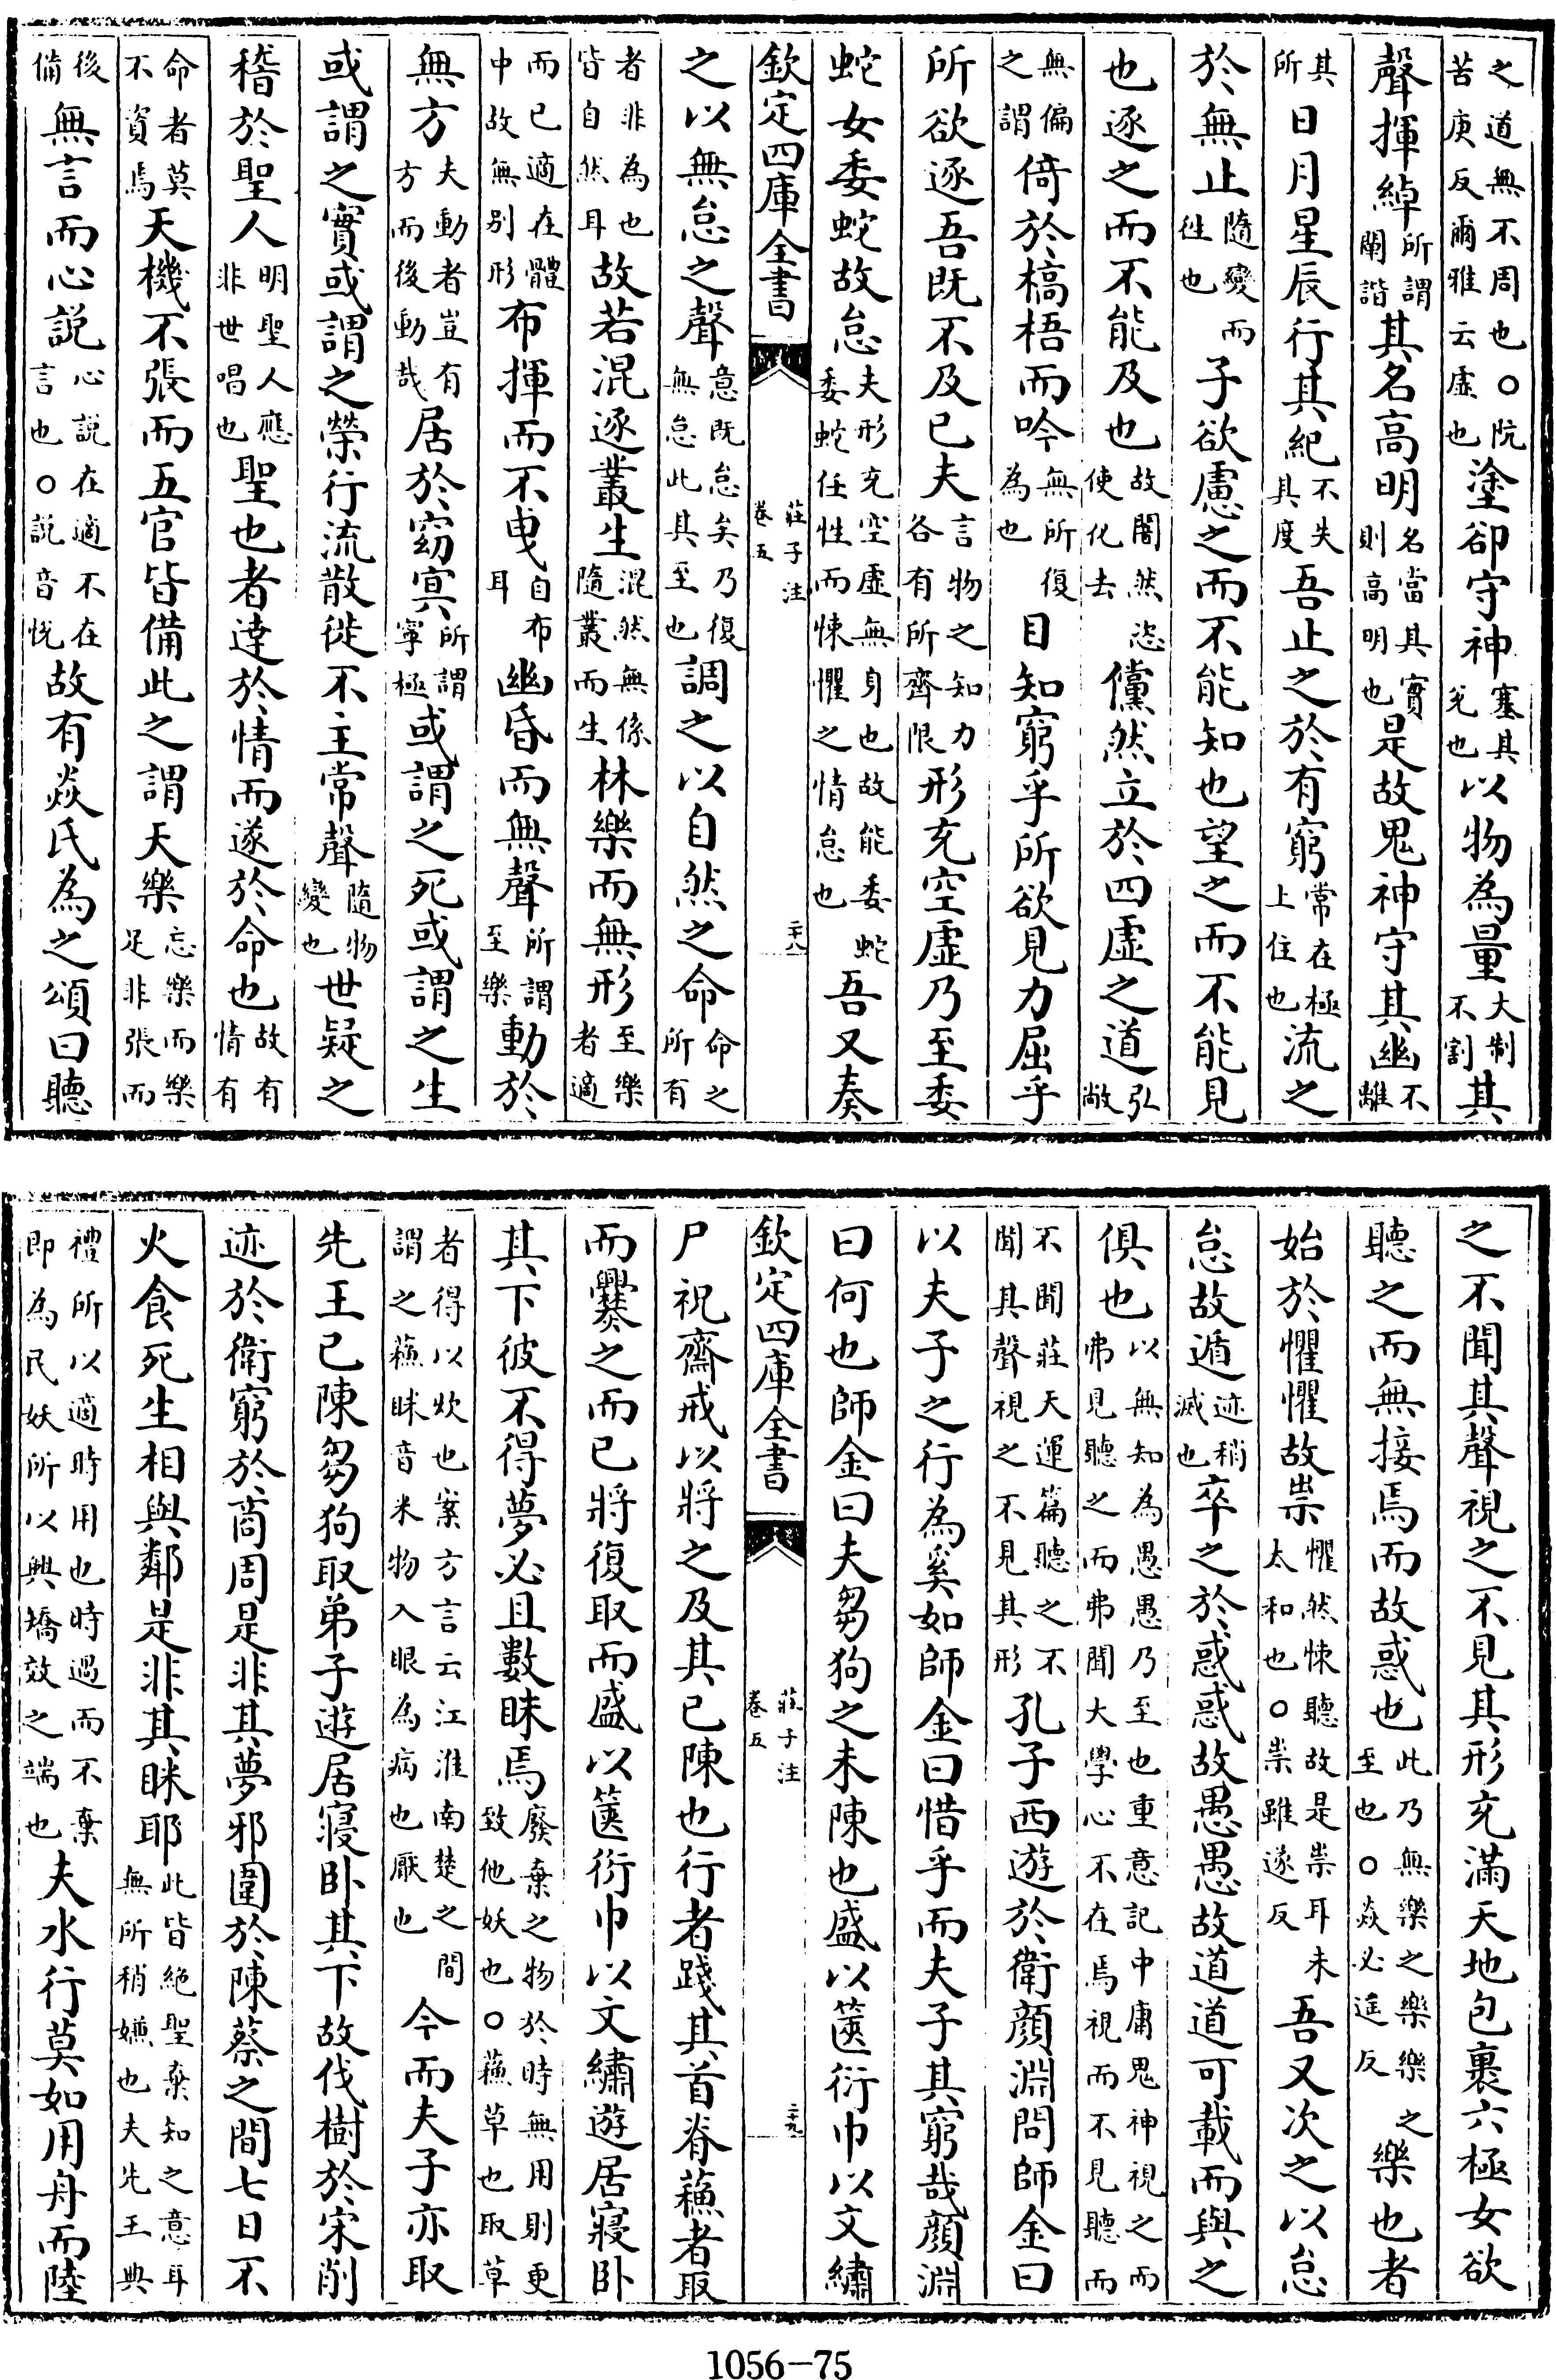 之道無不周也○阬苦庚反爾雅云虛也塗卻守神塞其兊也以物為量大制不割其
聲揮綽所謂闡諧其名高明名當其實則高明也是故鬼神守其幽不離
其所日月星辰行其紀不失其度吾止之於有窮常在極上住也流之
於無止隨變而徃也子欲慮之而不能知也望之而不能見
也逐之而不能及也故闇然恣使化去儻然立於四虛之道弘敞
無偏之謂倚於槁梧而吟無所復為也目知窮乎所欲見力屈乎
所欲逐吾既不及已夫言物之知力各有所齊限形充空虛乃至委
蛇女委蛇故怠夫形充空虛無身也故能委蛇委蛇任性而悚懼之情怠也吾又奏
欽定四庫全書 莊子注卷五 二十八
之以無怠之聲意既怠矣乃復無怠此其至也調之以自然之命命之所有
者非為也皆自然耳故若混逐叢生混然無係隨叢而生林樂而無形至樂者適
而已適在體中故無别形布揮而不曳自布耳幽昏而無聲所謂至樂動於
無方夫動者豈有方而後動哉居於窈冥所謂寧極或謂之死或謂之生
或謂之實或謂之榮行流散徙不主常聲隨物變也世疑之
稽於聖人明聖人應非世唱也聖也者達於情而遂於命也故有情有
命者莫不資焉天機不張而五官皆備此之謂天樂忘樂而樂足非張而
後備無言而心説心説在適不在言也○説音悅故有焱氏為之頌曰聽
之不聞其聲視之不見其形充滿天地包裹六極女欲
聽之而無接焉而故惑也此乃無樂之樂樂之至也○焱必遥反樂也者
始於懼懼故祟懼然悚聽故是祟耳未太和也○祟雖遂反吾又次之以怠
怠故遁迹稍滅也卒之於惑惑故愚愚故道道可載而與之
俱也以無知為愚愚乃至也重意記中庸鬼神視之而弗見聽之而弗聞大學心不在焉視而不見聽而
不聞莊天運篇聽之不聞其聲視之不見其形孔子西遊於衛顔淵問師金曰
以夫子之行為奚如師金曰惜乎而夫子其窮哉顔淵
曰何也師金曰夫芻狗之未陳也盛以篋衍巾以文繡
欽定四庫全書 莊子注卷五 二十九
尸祝齋戒以將之及其已陳也行者踐其首脊蘓者取
而爨之而已將復取而盛以篋衍巾以文繡遊居寢卧
其下彼不得夢必且數眯焉廢棄之物於時無用則更致他妖也○蘓草也取草
者得以炊也案方言云江淮南楚之間謂之蘓眯音米物入眼為病也厭也今而夫子亦取
先王已陳芻狗取弟子遊居寢卧其下故伐樹於宋削
迹於衛窮於商周是非其夢邪圍於陳蔡之間七日不
火食死生相與鄰是非其眯耶此皆絶聖棄知之意耳無所稍嫌也夫先王典
禮所以適時用也時過而不棄即為民妖所以興矯效之端也夫水行莫如用舟而陸
1056-75